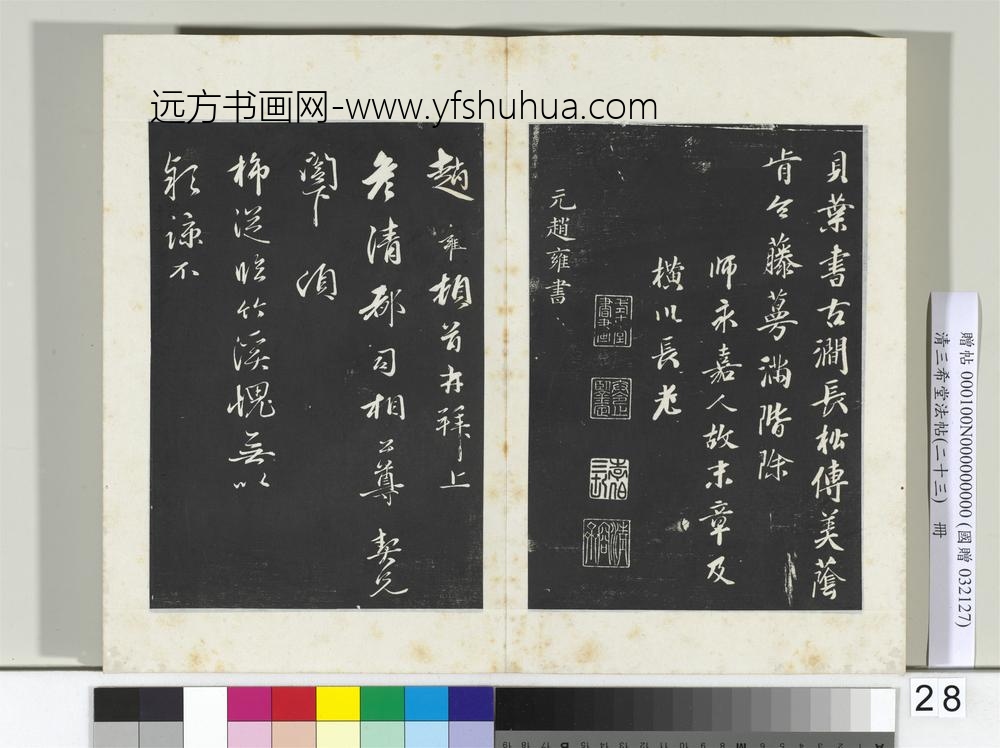 远方书画网-www.yfshuhua.com
貝葉書古澗長松傳美蔭
肯令藤蔓滿階除
師永嘉人故末章及
橫川長老
元趙雍書
趙雍頓首再拜上
彥清郡司相公尊契兄
閣下須
柿從臨竹溪愧無以
報諒不
贈帖 000100N000000000 (國贈 032127)
清三希堂法帖(二十三) 冊
28